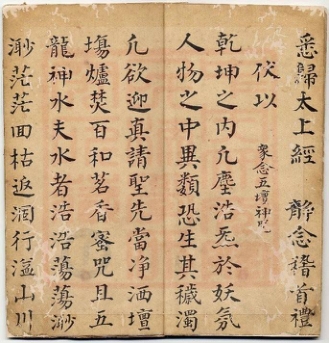 悉歸太上經 靜念稽首禮
伏以 衆念五壇神咒
乾坤之内凢塵浩炁於妖氛
人物之中異類恐生其穢濁
凢欲迎真請聖先當净洒壇
塲爐焚百和茗香宻咒且五
龍神水夫水者浩浩蕩蕩渺
渺茫茫囬枯返涸行溢山川